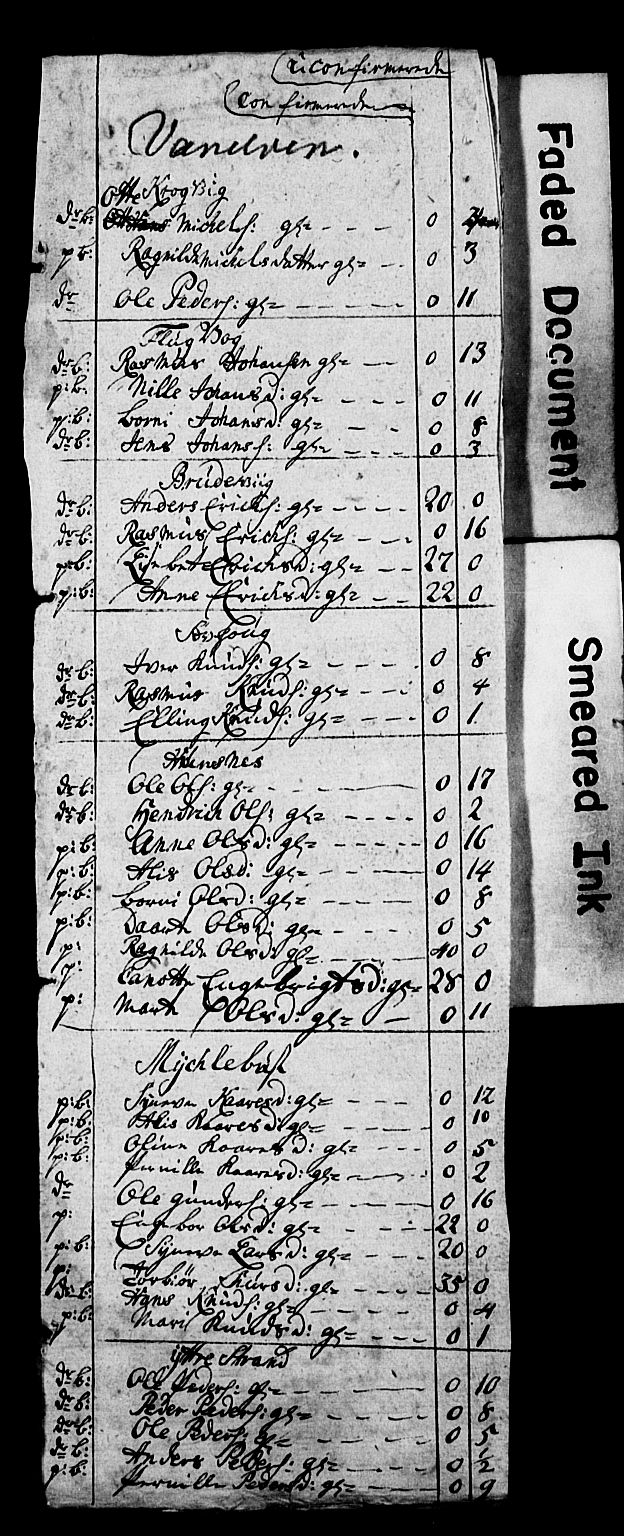 uconfirmerede
confirmerede
Vanelven.
Otte Krogvig
dr b: Michels: gl= 0
p b: Ragnilde Michelsdatter gl= 0 3
dr Ole Peders: gl= 0 11
Flugvog
dr b: Rasmus Johansen gl= 0 13
p: b: Nille Johansd: gl= 0 11
p: b: Borni Johansd: gl= 0 8
dr b: Jens Johans: gl= 0 3
Brudevig
dr b: Anders Erichs: gl= 20 0
dr b: Rasmus Erichs: gl= 0 16
p: b: Lisbet Erichsd: gl= 27 0
p: b: Anne Erichsd: gl= 22 0
dr b: Iver Knuds: gl= 0 8
dr b: Rasmus Knuds: gl= 0 4
dr b: Elling Knuds: gl= 0 1
Aamsnes
dr b: Ole Ols: gl= 0 17
dr b: Hendrich Ols: gl= 0 2
p: b: Anne Olsd: gl= 0 16
p: b: Alis Olsd: gl= 0 14
p: b: Borni Olsd: gl= 0 8
p: b: Daarte Olsd: gl= 0 5
p: Ragnilde Olsd: gl= 40 0
p: Engebrigtsd: gl= 28 0
p: Marte Olsd: gl= 0 11
Mychlebust
p: b: Syneve Kaaresd: gl= 0 12
p: b: Alis Kaaresd: gl= 0 10
p: b: Oline Kaaresd: gl= 0 5
p: b: Pernille Kaaresd: gl= 0 2
dr Ole Gunders: gl= 0 16
p: Engebor Olsd: gl= 22 0
p: b: Syneve Larsd: gl= 20 0
p: Torbiør Siursd: gl= 35 0
dr b: Hans Knuds: gl= 0 4
p: b: Mari Knudsd: gl= 0 1
ytre Strand
dr b: Ole Peders: gl= 0 10
dr b: Peder Peders: gl= 0 8
dr b: Ole Peders: gl= 0 5
dr b: Anders Peders: gl= 0 1/2
p: b: Pernille Pedersd: gl= 0 9
Faded Document
Smeared Ink